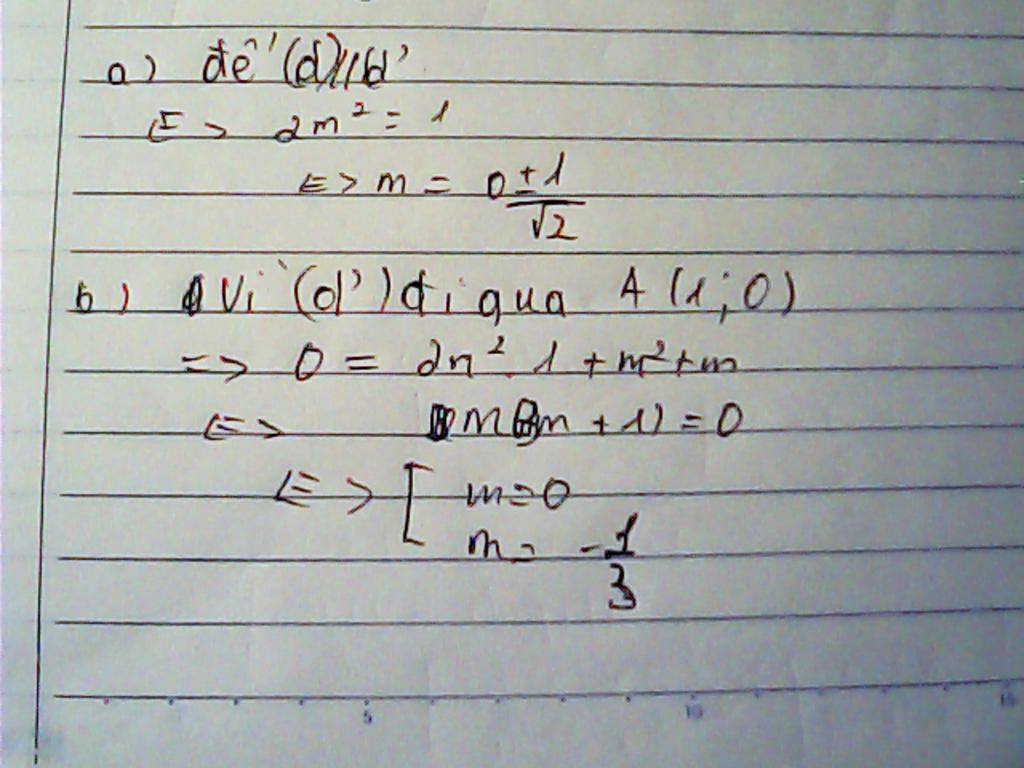 a) để (d)//d'
<=> 2m² = 1
<=> m = ±1/√2
b) Vì (d') đi qua A (1; 0)
=> 0 = 2m². 1 + m² + m
<=> m(3m + 1) = 0
<=> [ m = 0
m = -1/3
5 10 15